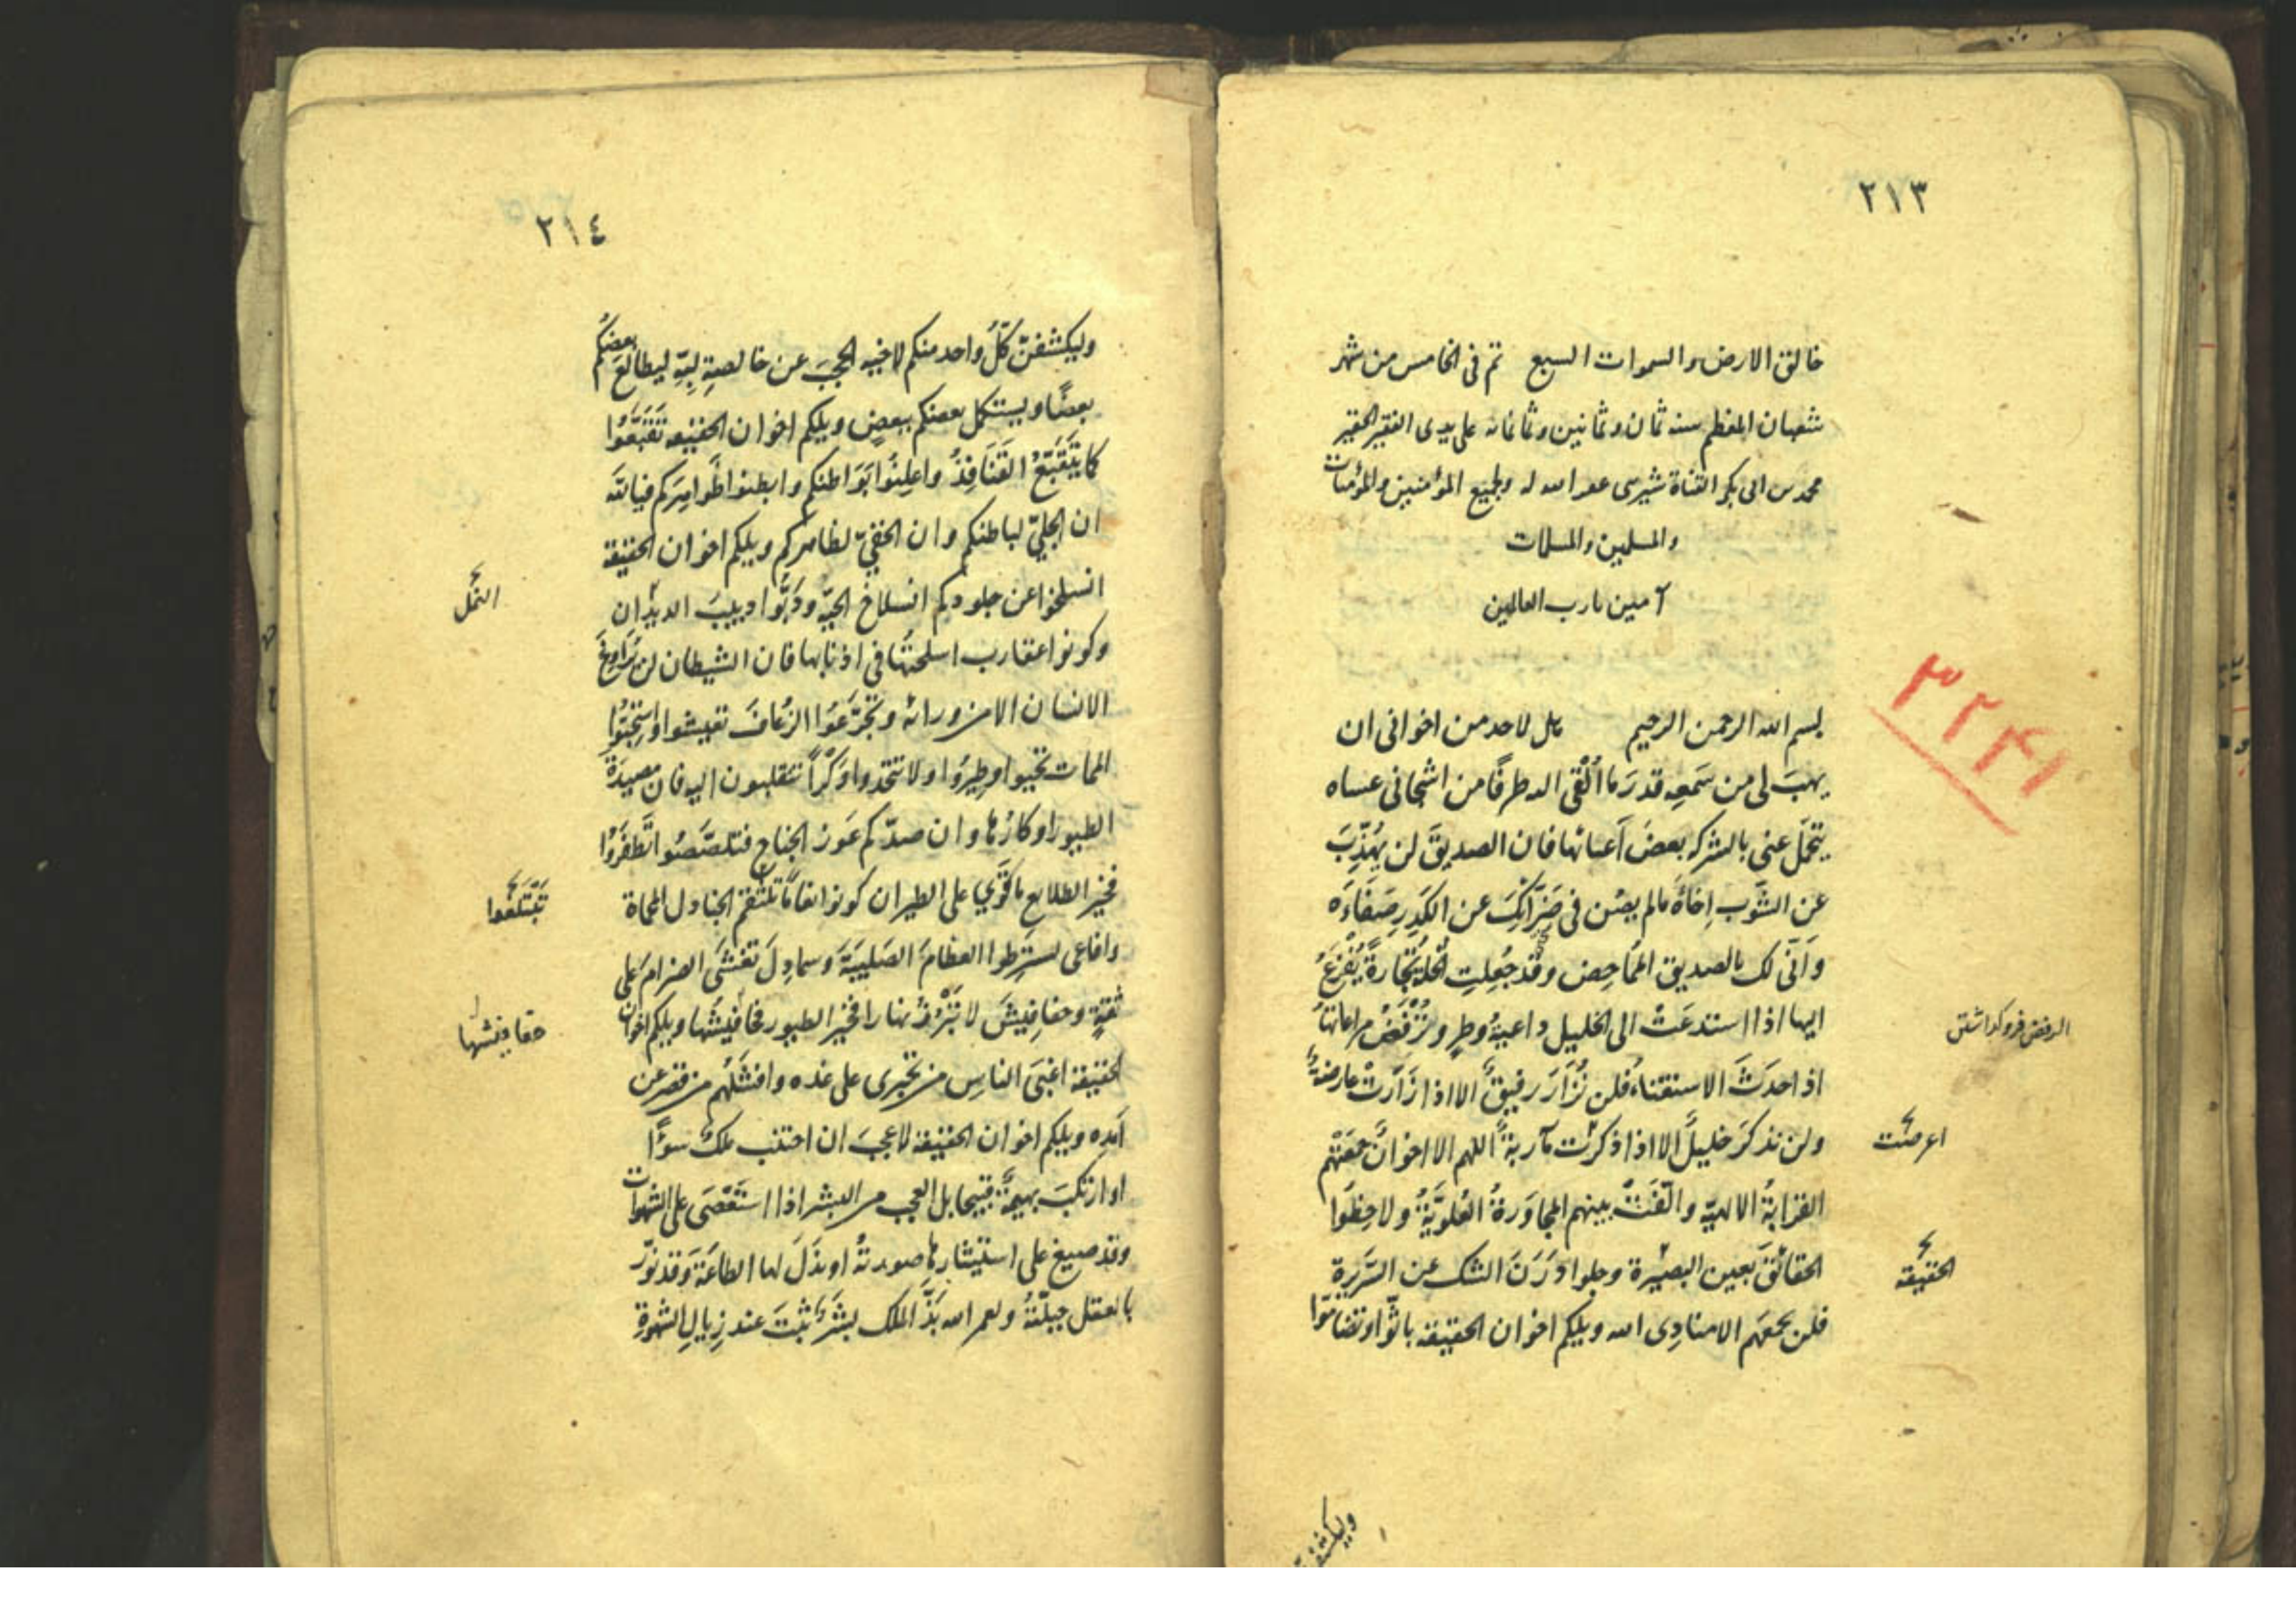 ٢١٣
خالق الارض والسموات السبع تم فى الخامس من شهر
شعبان المعظم سنه ثمان وثمانين وثمانمائه على يدى الفقير الحقير
محمد بن ابى بكر عفر الله له ولجميع المؤمنين والمؤمنات
والمسلمين والمسلمات
آمين يا رب العالمين
٣٢٤١
بسم الله الرحمن الرحيم هل لاحد من اخوانى ان
يهبَ لى من سَمعِه قدرَ ما اُلْقى اليه طرفًا من اشجانى عساه
يتحمّل عنى بالشركه بعضَ اَعبائها فان الصديقَ لن يهذّبَ
عن الشَوب اِخاهُ مالم يصُن فى ضَرّائِكَ عن الكدَرِ صَفَاءَه
واَنّى لك بالصديق المُمَاحِض وقد جُعِلتِ الخلّة تجارةً يُفْزَعُ
ايها اذا استدعَتْ الى الخليل داعيةُ وطرٍ وتُرْفَضُ مراعاتُها
الرفض فروگذاشتن
اذ احدَثَ الاستغناءُ فلن تُزَارَ رفيقٌ الا اذا زَارَتْ عارضةٌ
ولن تذكرَ خليلٌ الا اذا ذكرَت مآربةٌ اللهم الا اخوانٌ جمعَتْهم
اعرضت
القرابةُ الالهيّه والّفَتْ بينهم المجاوَرةُ العُلويّةُ ولاحظُوا
الحقائقَ بعين البصيرة وجلوا دَرَنَ الشك عن السّريرةِ
الحقيقه
فلن يجمعَهم الا منادِى الله ويلكم اخوان الحقيقه باثّوا وتضامّوا
وليكشفنّ
٢١٤
وليكشفنّ كلُّ واحد منكم لاخيه الحجبَ عن خالصةِ لبِّه ليطالعَ بعضُكم
بعضًا وليستكمل بعضكم ببعضٍ ويلكم اخوان الحقيقه تقَبَّعُوا
كما يتَقَبَّعُ القَنَافِذُ واعلِنُوا بَوَاطنكم وابطنوا ظَواهِرَكم فبالله
ان الجليّ لباطنكم وان الخفيّ لظاهركم ويلكم اخوان الحقيقة
انسلخوا عن جلودكم انسلاخَ الحيّه ودَبُّوا دبيبَ الديدان
النمل
وكونوا عقارب اسلحتُها فى اذنابها فان الشيطان لن يُراوِغَ
الانسان الا من ورائه وتجَرّعُوا الزعافَ تعيشوا واستحبّوا
الممات تحيوا وطِيرُوا ولا تتخذوا وَكْراً تنقلبون اليه فان مصيدةَ
الطيور اوكارُها وان صدّكم عَوَز الجناح فتلصّصُوا تَظفَرُوا
فخير الطلايع ما قَوِيَ على الطيران كونوا نعامًا تلتقم الجنادل المحماة
تبتلعوا
وافاعى تسترِطوا العظامَ الصَليبَةَ وسمادِلَ تغشَى الضرامَ على
ثقةٍ وخفافيشَ لا تَبْرُزُ نهارا فخير الطيور خفافيشُها ويلكم اخوان
خفافيشها
الحقيقه اغنَى الناسِ من تجرى على غده وافشَلُهم من قصر عن
اَمَدِه ويلكم اخوان الحقيقه لا عجبَ ان اجتنب ملكٌ سوءًا
او ارتكبَ بهيمةٌ قبيحا بل العجب من البشر اذا استَعْصَى على الشهوات
وقد صيغ على استيثارِها صورتُه او بذَلَ لها الطاعَةَ وقد نوّر
بالعقل جبلّتُهُ ولعمر الله بَذَّ الملك بشَرٌ ثبتَ عند زِيالِ الشهوةِ